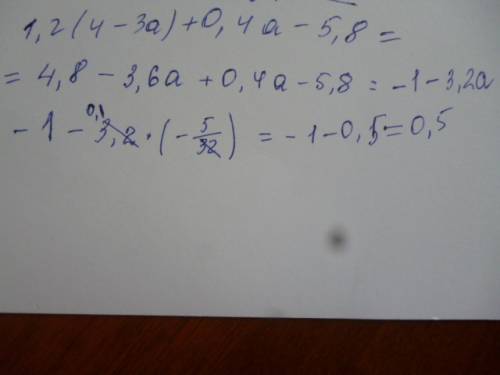 1,2(4-3a)+0,4a-5,8=
=4,8-3,6a+0,4a-5,8=-1-3,2a
-1-3,2·(-5/32)=-1-0,5=0,5
0,1